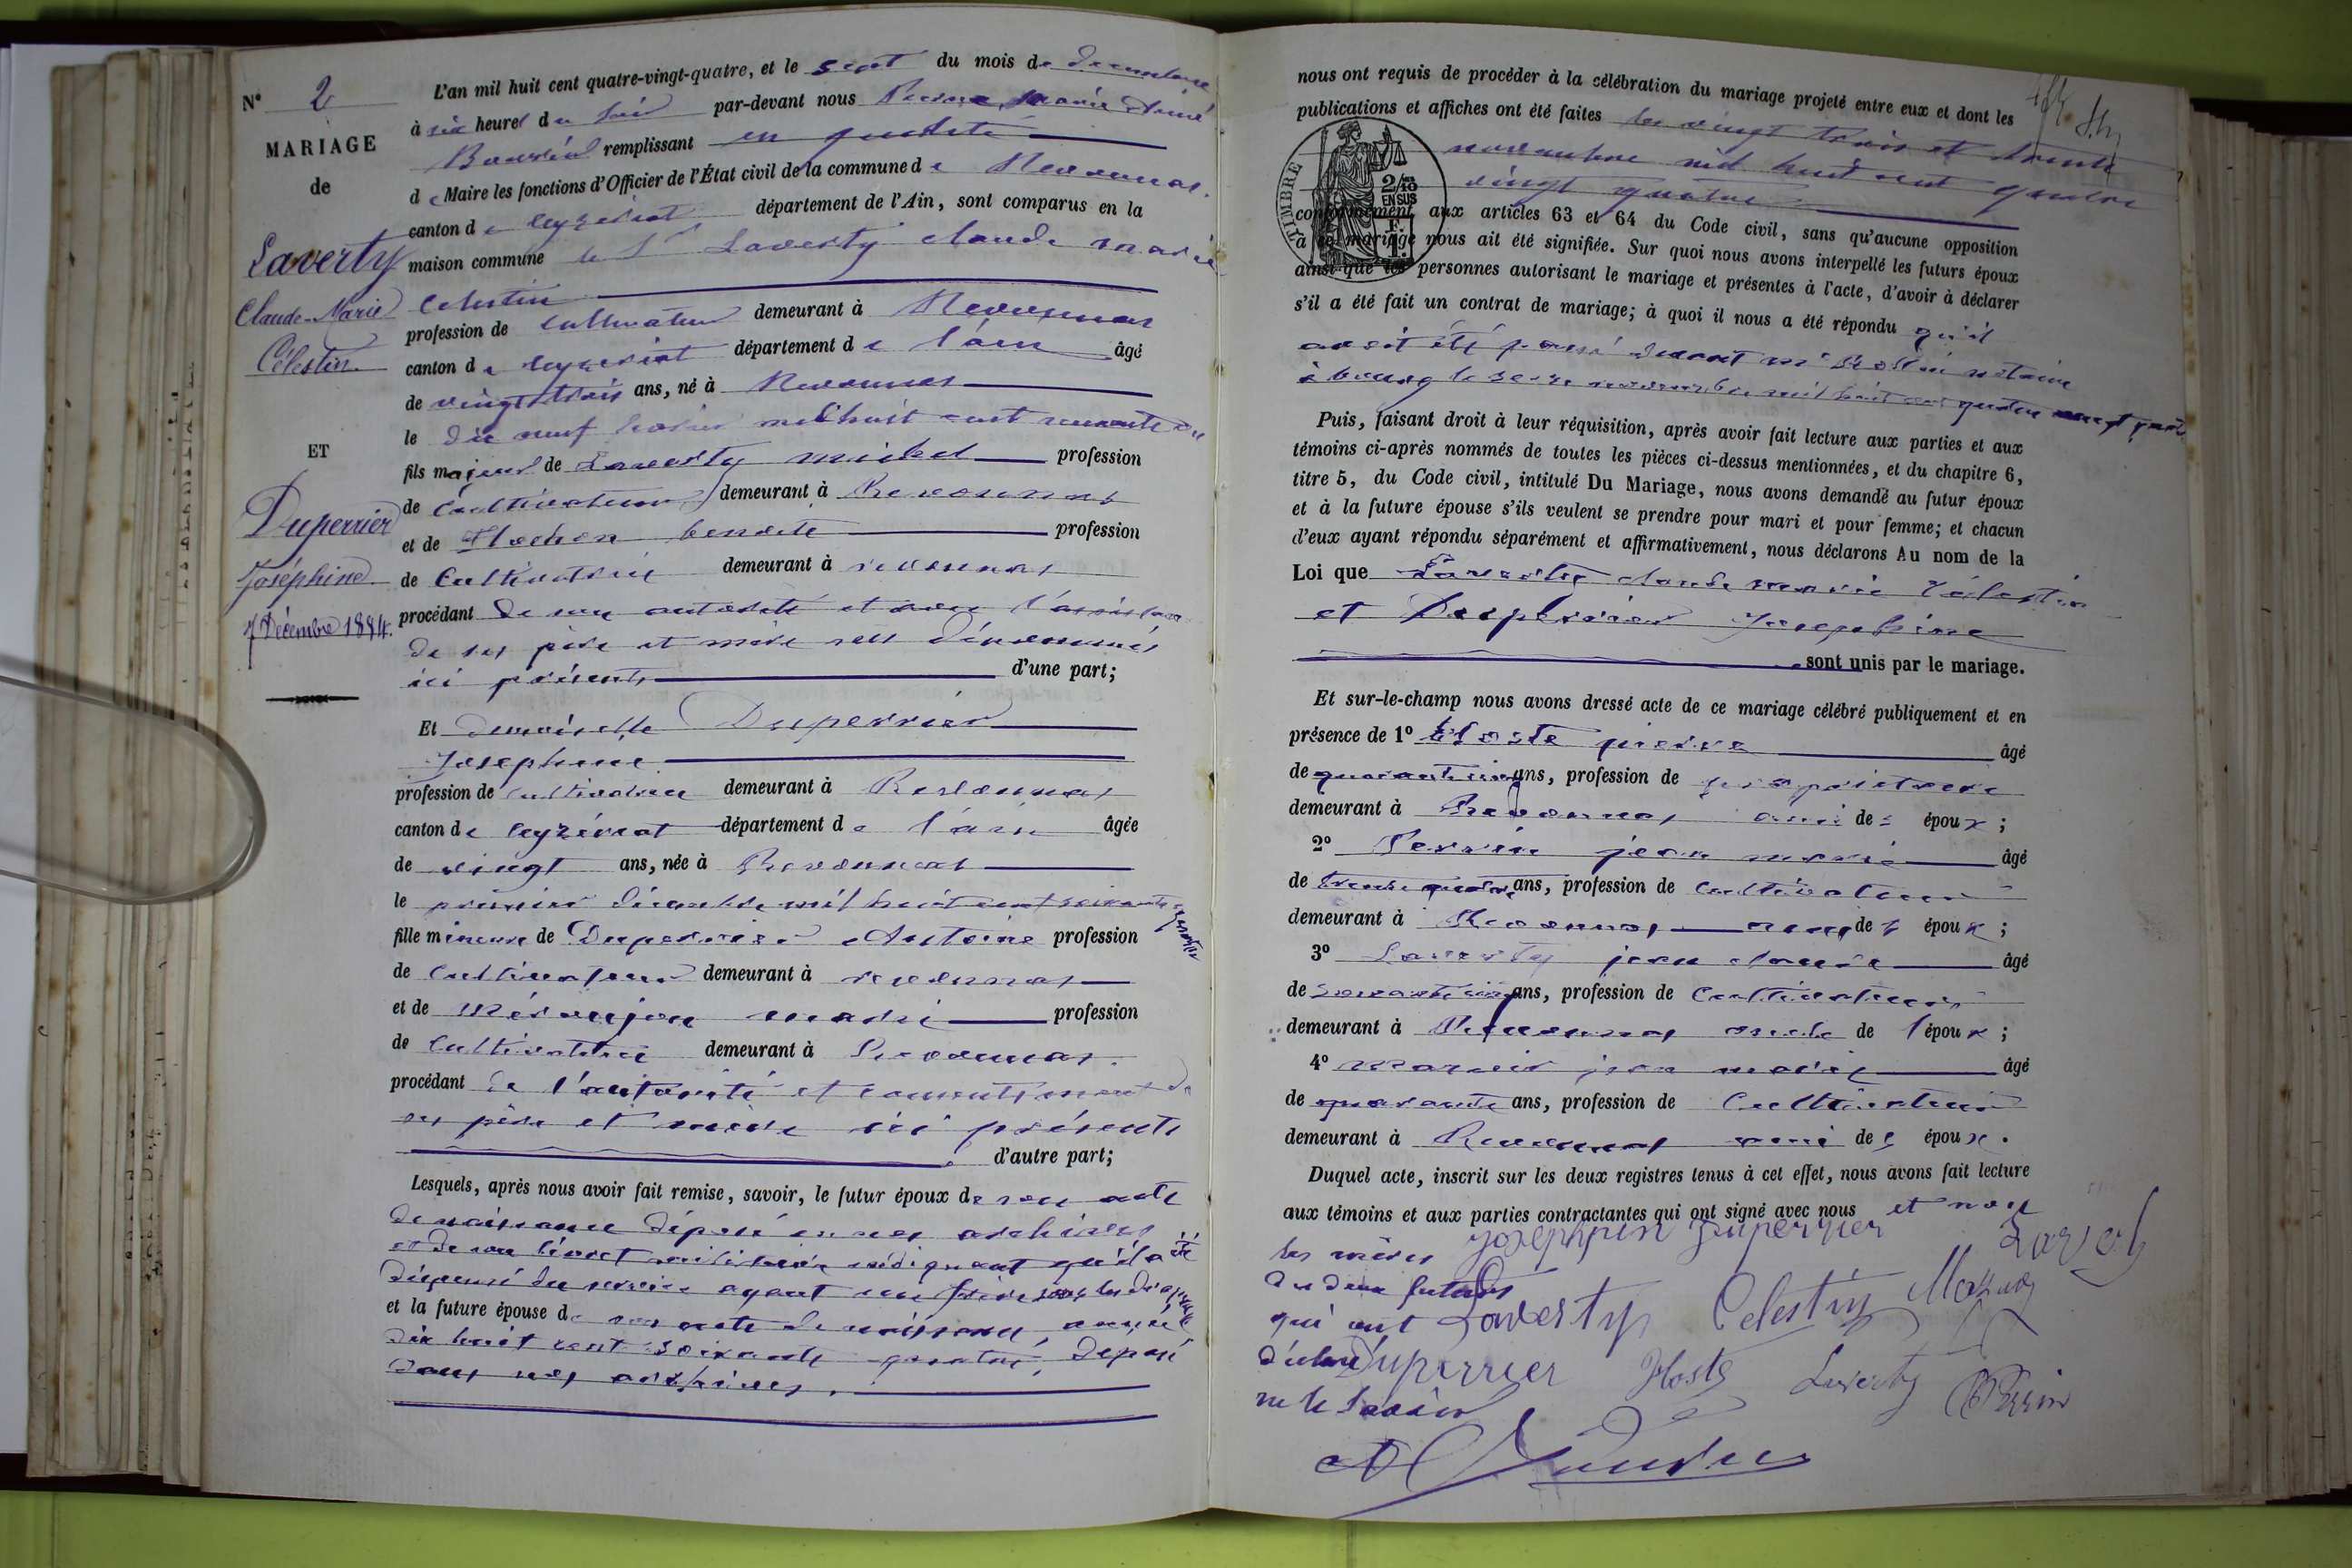 N° 2
MARIAGE
de
Laverty
Claude-Marie
Célestin
ET
Duperrier
Joséphine
7 Décembre 1884.
L'an mil huit cent quatre-vingt-quatre, et le sept du mois de décembre
à six heures du soir par-devant nous Marie Aimé
remplissant en qualité
de Maire les fonctions d'Officier de l'État civil de la commune de Revonnas
canton de Ceyzériat département de l'Ain, sont comparus en la
maison commune le Sr Laverty claude marie
Celestin
profession de cultivateur demeurant à Revonnas
canton de Ceyzeriat département de l'ain âgé
de vingt trois ans, né à Revonnas
le dix neuf mil huit cent soixante un
fils majeur de Laverty michel profession
de Cultivateur demeurant à Revonnas
et de benoite profession
de Cultivatrice demeurant à revonnas
procédant de son autorité et avec l'assistance
de ses père et mère sus dénommés
ici présents d'une part;
Et demoiselle Duperrier
Josephine
profession de cultivatrice demeurant à Revonnas
canton de Ceyzériat département de l'ain âgée
de vingt ans, née à Revonnas
le premier décembre mil huit cent soixante quatre
fille mineure de Duperrier Antoine profession
de Cultivateur demeurant à revonnas
et de marie profession
de Cultivatrice demeurant à Revonnas
procédant de l'autorité et consentement de
ses père et mère ici présents
d'autre part;
Lesquels, après nous avoir fait remise, savoir, le futur époux de son acte
de naissance déposé en nos archives
et de son livret militaire indiquant qu'il a été
dispensé du service ayant un frère sous les drapeaux
et la future épouse de son acte de naissance, année
dix huit cent soixante quatre, déposé
dans nos archives.
nous ont requis de procéder à la célébration du mariage projeté entre eux et dont les
publications et affiches ont été faites les vingt trois et trente
novembre mil huit cent quatre
vingt quatre
TIMBRE
2/10 EN SUS
conformément aux articles 63 et 64 du Code civil, sans qu'aucune opposition
à ce mariage nous ait été signifiée. Sur quoi nous avons interpellé les futurs époux
ainsi que les personnes autorisant le mariage et présentes à l'acte, d'avoir à déclarer
s'il a été fait un contrat de mariage; à quoi il nous a été répondu qu'il
avait été passé devant me notaire
à bourg le seize novembre mil huit cent quatre vingt quatre
Puis, faisant droit à leur réquisition, après avoir fait lecture aux parties et aux
témoins ci-après nommés de toutes les pièces ci-dessus mentionnées, et du chapitre 6,
titre 5, du Code civil, intitulé Du Mariage, nous avons demandé au futur époux
et à la future épouse s'ils veulent se prendre pour mari et pour femme; et chacun
d'eux ayant répondu séparément et affirmativement, nous déclarons Au nom de la
Loi que Laverty claude marie Célestin
et Duperrier Josephine
sont unis par le mariage.
Et sur-le-champ nous avons dressé acte de ce mariage célébré publiquement et en
présence de 1° Hoste pierre âgé
de quarante cinq ans, profession de propriétaire
demeurant à Revonnas ami des époux;
2° Perrin jean marie âgé
de trente quatre ans, profession de Cultivateur
demeurant à Revonnas ami des époux;
3° Laverty jean claude âgé
de ans, profession de Cultivateur
demeurant à Revonnas oncle de l'époux;
4° jean marie âgé
de quarante ans, profession de Cultivateur
demeurant à Revonnas ami des époux.
Duquel acte, inscrit sur les deux registres tenus à cet effet, nous avons fait lecture
aux témoins et aux parties contractantes qui ont signé avec nous et non
les mères
des deux futurs
qui ont
déclaré
ne le savoir
Josephin Duperrier
Laverty Celestin
Duperrier Hoste Laverty Perrin